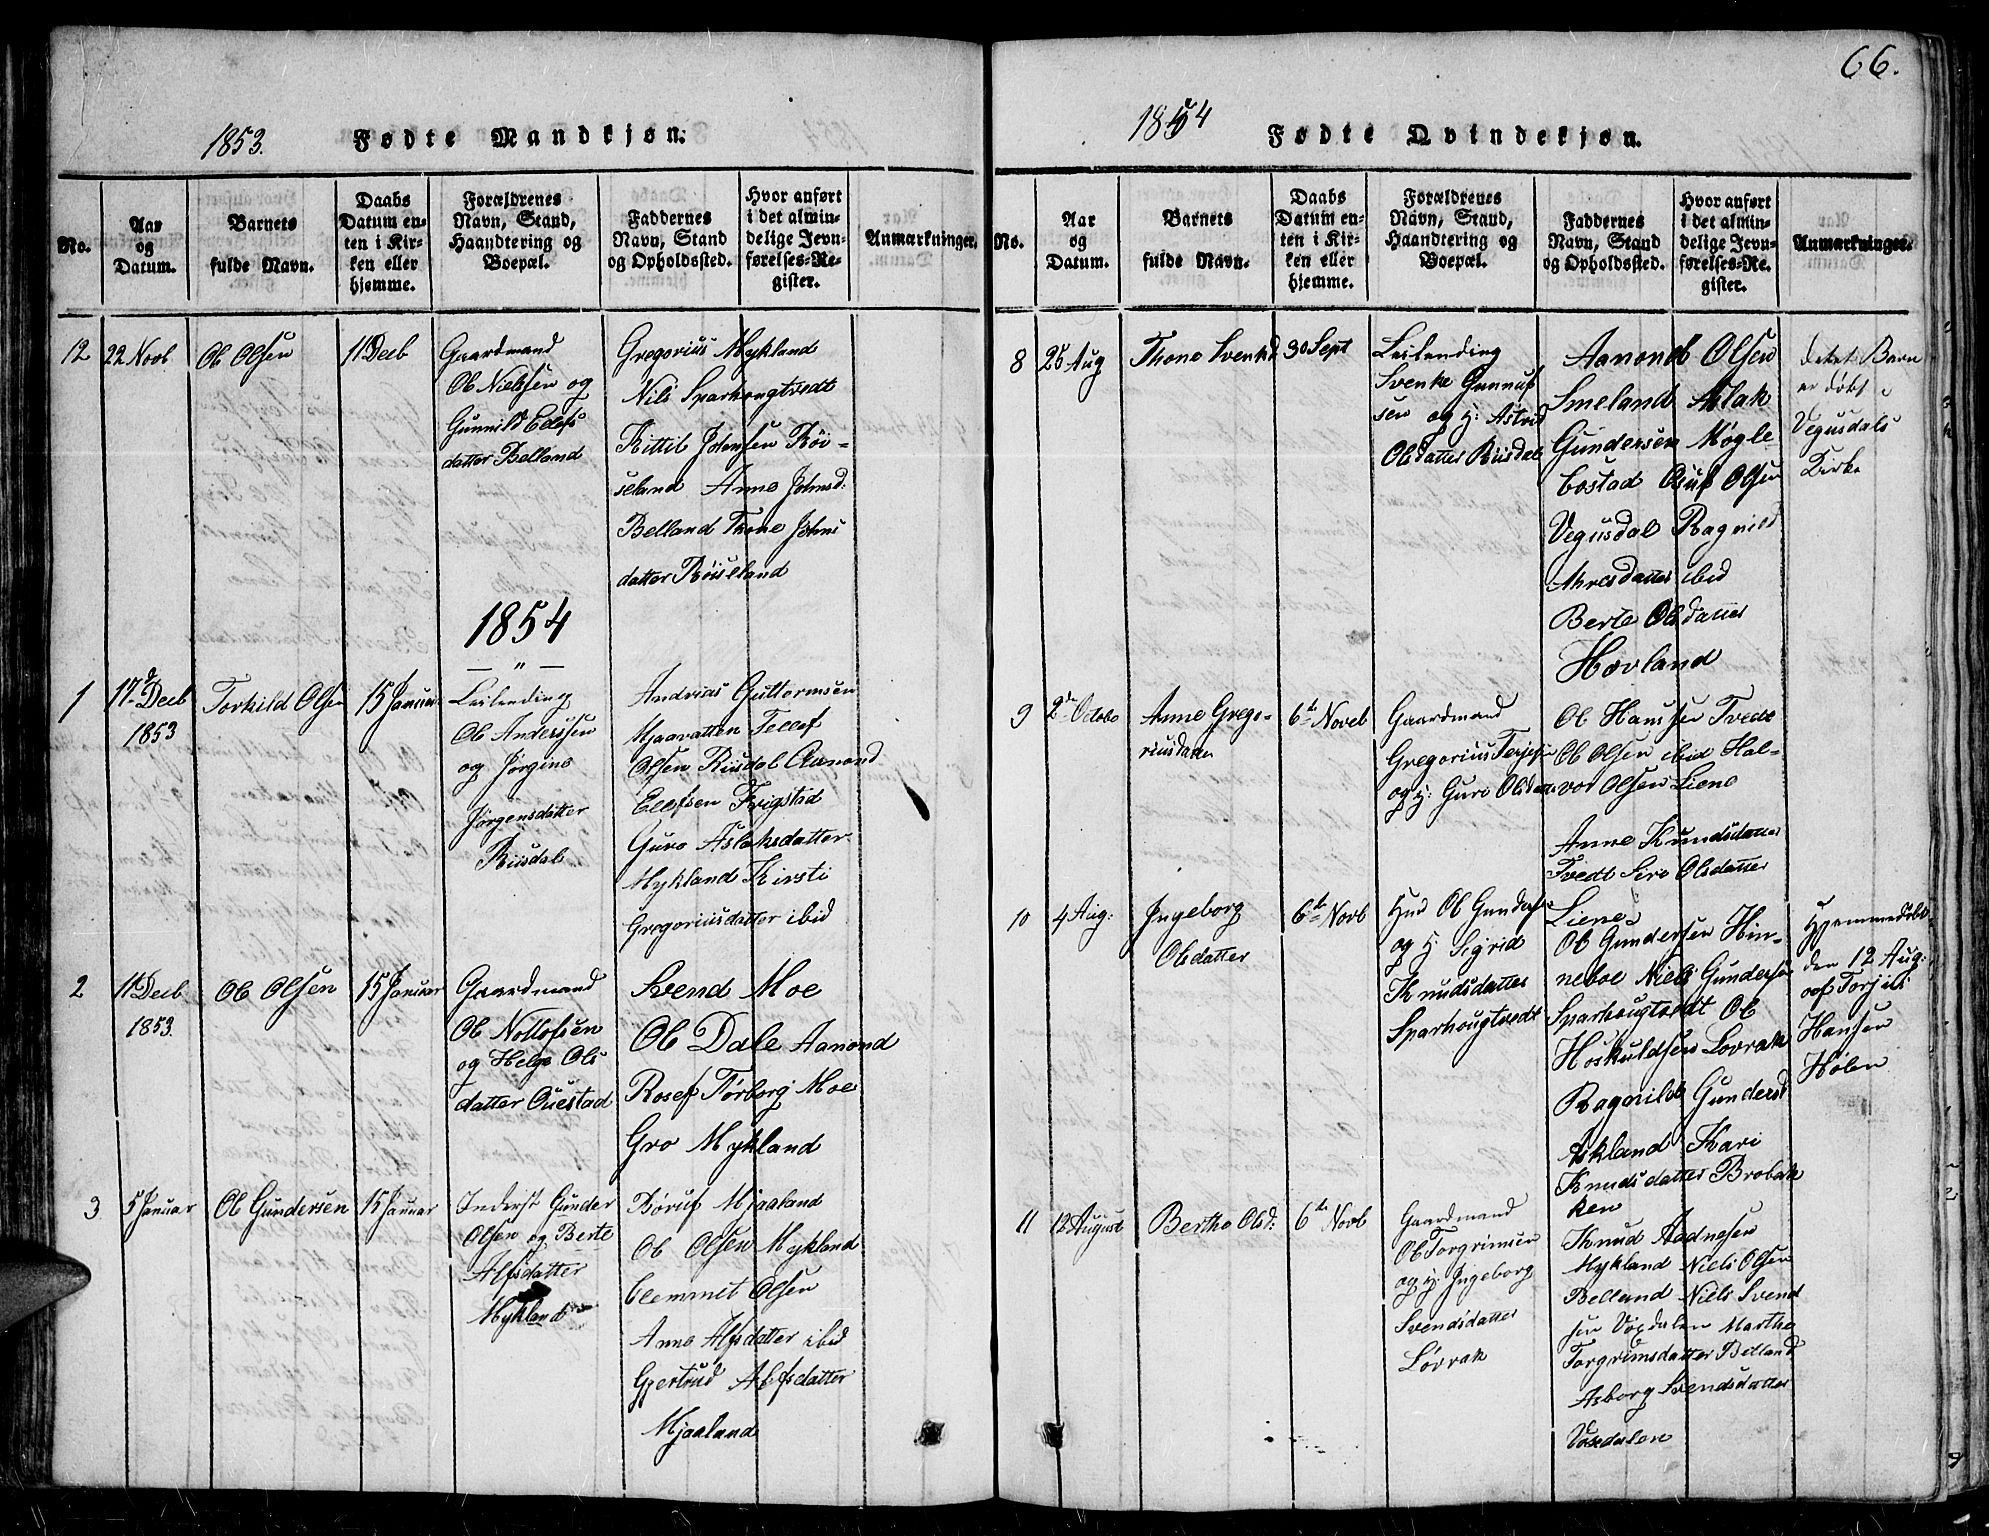 66.
1853. Fødte Mandkjøn.
No.
Aar
og
Datum.
Barnets
fulde Navn.
Daabs
Datum en-
ten i Kir-
ken eller
hjemme.
Forældrenes
Navn, Stand,
Haandtering og
Boepæl.
Faddernes
Navn, Stand
og Opholdssted.
Hvor anført
i det almin-
delige Jevn-
førelses-Re-
gister.
Anmærkninger.
12
22 Novb
Ole Olsen
11 Decb
Gaardmand
Ole Nielssen og
Gunnild Ellefs
datter Belland
Gregorius Mykland
Nils Sparhougtvedt
Kittil Johnsen Røi-
seland Anne Johnsd:
Belland Thone Johns
datter Røiseland
1854
1
17 Decb
1853
Torkild Olsen
15 Januar
Leilending
Ole Anderssen
og Jørgine
Jørgensdatter
Risdal
Andrias Guttormsen
Mjaavatten Tellef
Olsen Risdal Aamond
Ellefsen Frigstad
Guro Aslaksdatter
Mykland Kirsti
Gregoriusdatter ibid
2
11 Decb
1853.
Ole Olsen
15 Januar
Gaardmand
Ole Nottofsen
og Helge Ols
datter Ouestad
Svend Moe
Ole Dale Aamond
Rosef Tørborg Moe
Gro Mykland
3
5 Januar
Ole Gundersen
15 Januar
Inderst Gunder
Olsen og Berte
Alfsdatter
Mykland
Børuf Mjaaland
Ole Olsen Mykland
Clemmet Olsen
Anne Alfsdatter ibid
Gjertrud Alefsdatter
Mjaaland
1854 Fødte Qvindekjøn.
No.
Aar
og
Datum.
Barnets
fulde Navn.
Daabs
Datum en-
ten i Kir-
ken eller
hjemme.
Forældrenes
Navn, Stand,
Haandtering og
Boepæl.
Faddernes
Navn, Stand
og Opholdssted.
Hvor anført
i det almin-
delige Jevn-
førelses-Re-
gister.
Anmærkninger.
8
25 Aug
Thone Svenkd
30 Sept
Leilending
Svenke Gunnuf
sen og H: Astrid
Olsdatter Risdal
Aanond Olsen
Smeland Aslak
Gundersen Møgle
bostad Osuf Olsen
Vegusdal Ragnild
Ahresdatter ibid
Berte Olsdatter
Hovland
detet Barn
er døbt i
Vegusdals
Kirke
9
2de Octobr
Anne Grego-
riusdatter
6te Novb
Gaardmand
Gregorius Terjesen
og H: Guro Olsdatter
Ole Hanssen Tvedt
Ole Olsen ibid Hal-
vor Olsen Liene
Anne Knudsdatter
Tvedt Siro Olsdatter
Liene
10
4 Aug:
Ingeborg
Olsdatter
6te Novb
Hmd Ole Gundersen
og H: Sigrid
Knudsdatter
Sparhougtvedt
Ole Gundersen Hin-
neboe Niels Gundersen
Sparhougtvedt Ole
Hoskuldsen Lovrak
Ragnilde Gundersd
Askland Kari
Knudsdatter Brobak
ken
Hjemmedøbt
den 12 Aug:
af Torjus
Hansen
Hølen
11
12 August
Berthe Olsd:
6te Novb
Gaardmand
Ole Torgrimsen
og H: Ingeborg
Svendsdatter
Løvrak
Knud Aadnesen
Mykland Niels Olsen
Belland Niels Svend
sen Vosdalen Marthe
Torgrimsdatter Belland
Asborg Svendsdatter
Vosdalen